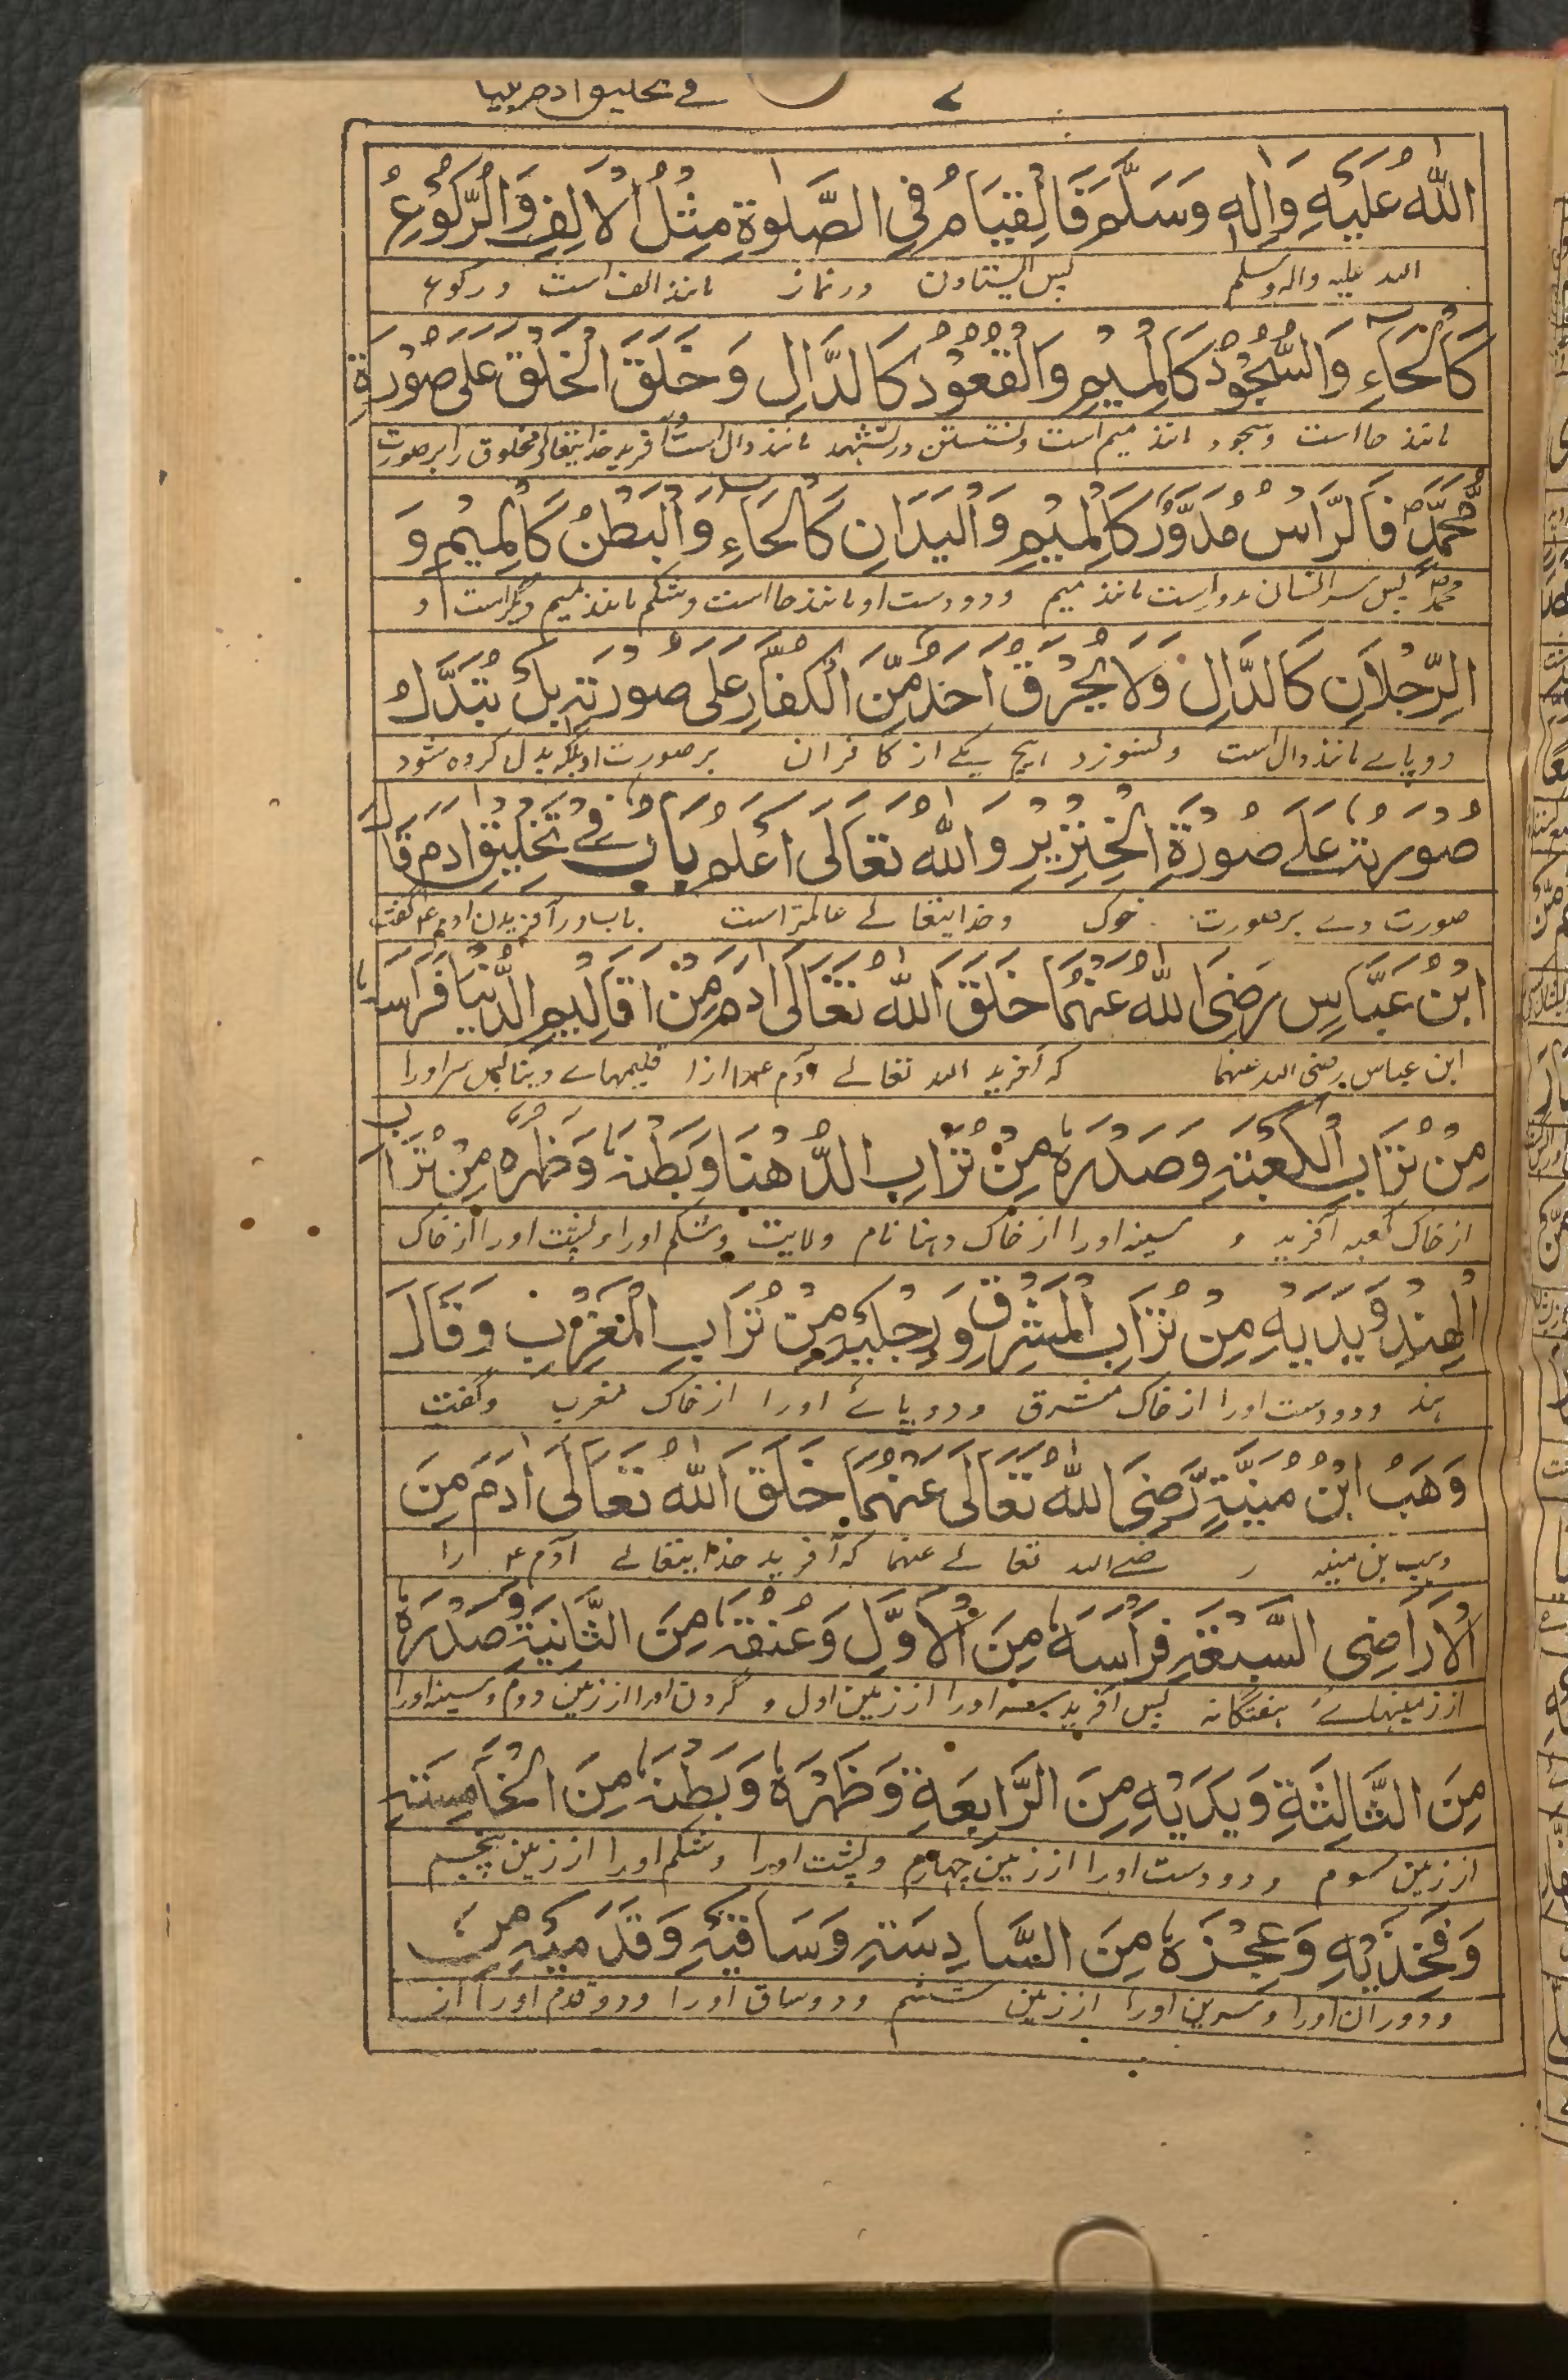 ۷ في تخليق ادم
اللّٰهُ عَلَيْهِ وَاٰلِهٖ وَسَلَّمَ فَالْقِيَامُ فِي الصَّلٰوةِ مِثْلُ الْاَلِفِ وَالرُّكُوْعُ
الله عليه واله وسلم پس ایستادن در نماز مانند الف است و رکوع
كَالْحَاءِ وَالسُّجُوْدُ كَالْمِيْمِ وَالْقُعُوْدُ كَالدَّالِ وَخَلَقَ الْخَلْقَ عَلٰى صُوْرَةِ
مانند حا است وسجود مانند میم است ونشستن در تشهد مانند دال است و آفرید خدایتعالی مخلوق را بر صورت
مُحَمَّدٍ فَالرَّاسُ مُدَوَّرٌ كَالْمِيْمِ وَالْيَدَانِ كَالْحَاءِ وَالْبَطْنُ كَالْمِيْمِ وَ
محمد پس سر انسان مدور است مانند میم و دو دست او مانند حا است وشکم مانند میم دیگر است و
الرِّجْلَانِ كَالدَّالِ وَلَا يُحْرَقُ اَحَدٌ مِّنَ الْكُفَّارِ عَلٰى صُوْرَتِهٖ بَلْ تُبَدَّلُ
دو پاے مانند دال است ونسوزد هیچ یکے از کافران بر صورت او بلکه بدل کرده شود
صُوْرَتُهٗ عَلٰے صُوْرَةِ الْخِنْزِيْرِ وَاللّٰهُ تَعَالٰى اَعْلَمُ بَابٌ فِےْ تَخْلِيْقِ اٰدَمَ قَالَ
صورت وے بر صورت خوک وخدایتعالے عالمتر است باب در آفریدن ادم ع گفت
ابْنُ عَبَّاسٍ رَضِىَ اللّٰهُ عَنْهُمَا خَلَقَ اللّٰهُ تَعَالٰى اٰدَمَ مِنْ اَقَالِيْمِ الدُّنْيَا فَرَاسَهٗ
ابن عباس رضی الله عنهما که آفرید الله تعالے آدم ع را از اقلیمهاے دنیا پس سر اورا
مِنْ تُرَابِ الْكَعْبَةِ وَصَدْرَهٗ مِنْ تُرَابِ الدَّهْنَا وَبَطْنَهٗ وَظَهْرَهٗ مِنْ تُرَابِ
از خاک کعبه آفرید و سینه اورا از خاک دهنا نام ولایت وشکم اورا وپشت اورا از خاک
الْهِنْدِ وَيَدَيْهِ مِنْ تُرَابِ الْمَشْرِقِ وَرِجْلَيْهِ مِنْ تُرَابِ الْمَغْرِبِ وَقَالَ
هند ودو دست اورا از خاک مشرق ودو پاے اورا از خاک مغرب وگفت
وَهَبُ ابْنُ مُنَبَّةٍ رَّضِىَ اللّٰهُ تَعَالٰى عَنْهُمَا خَلَقَ اللّٰهُ تَعَالٰى اٰدَمَ مِنَ
وهب بن منبه رضے الله تعالے عنهما که آفرید خدایتعالے آدم ع را
الْاَرَاضِى السَّبْعَةِ فَرَاْسَهٗ مِنَ الْاَوَّلِ وَعُنُقَهٗ مِنَ الثَّانِيَةِ وَصَدْرَهٗ
از زمینهاۓ هفتگانه پس آفرید سر اورا از زمین اول و گردن اورا از زمین دوم وسینه اورا
مِنَ الثَّالِثَةِ وَيَدَيْهِ مِنَ الرَّابِعَةِ وَظَهْرَهٗ وَبَطْنَهٗ مِنَ الْخَامِسَةِ
از زمین سوم ودو دست اورا از زمین چهارم وپشت اورا وشکم اورا از زمین پنجم
وَفَخِذَيْهِ وَعَجِزَهٗ مِنَ السَّادِسَةِ وَسَاقَيْهِ وَقَدَمَيْهِ مِنَ
ودو ران اورا وسرین اورا از زمین ششم ودو ساق اورا ودو قدم اورا از